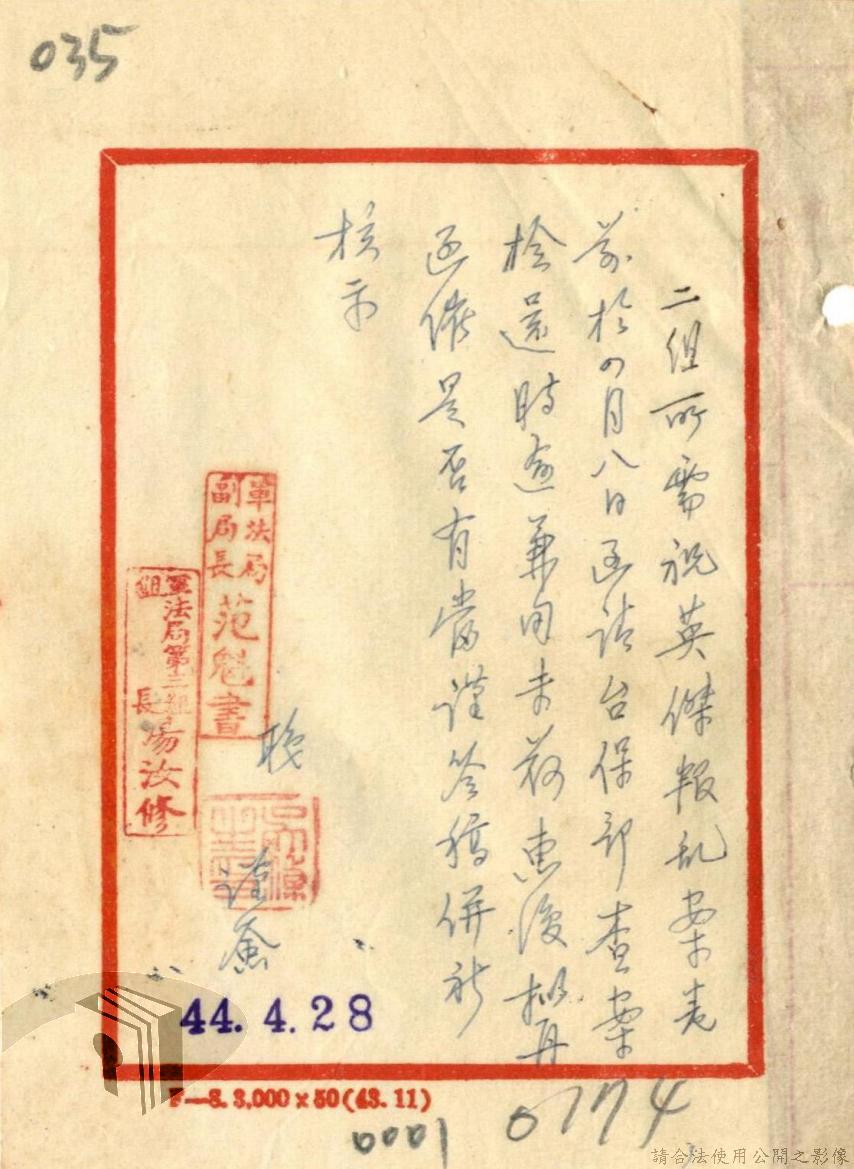 035
二組所需祝英傑叛乱案卷
前於四月八日函請台保部查案
檢還時逾兼旬未荷惠復擬再
函催是否有當謹簽稿併祈
核示
職
謹簽
軍法局副局長范魁書
軍法局第三組組長楊汝修
44. 4. 28
F—S. 3,000×50(43.11)
0001 0774
請合法使用公開之影像